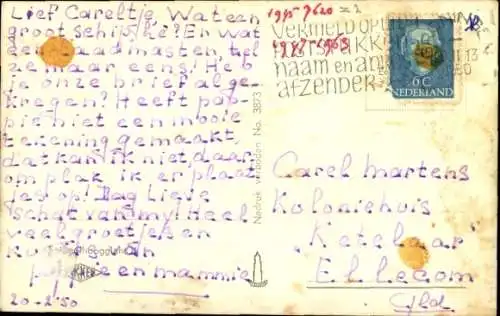 Lief Careltje, Wat een
groot schip hè? En wat
een laadmasten, tel
ze maar eens! Heb
je onze brief al ge-
kregen? Heeft pap-
pie niet een mooie
tekening gemaakt
dat kan ik niet, daar
om plak ik er plaat
jes op! Dag Lieve
schat van my. Heel
veel groetjes en
van
pappie en mammie
20-2-'50
Nadruk verboden No. 3873
VERMELD OP
naam en
afzender
6c
NEDERLAND
Carel Martens
Koloniehuis
"Ketelaar"
Ellecom
Gld.